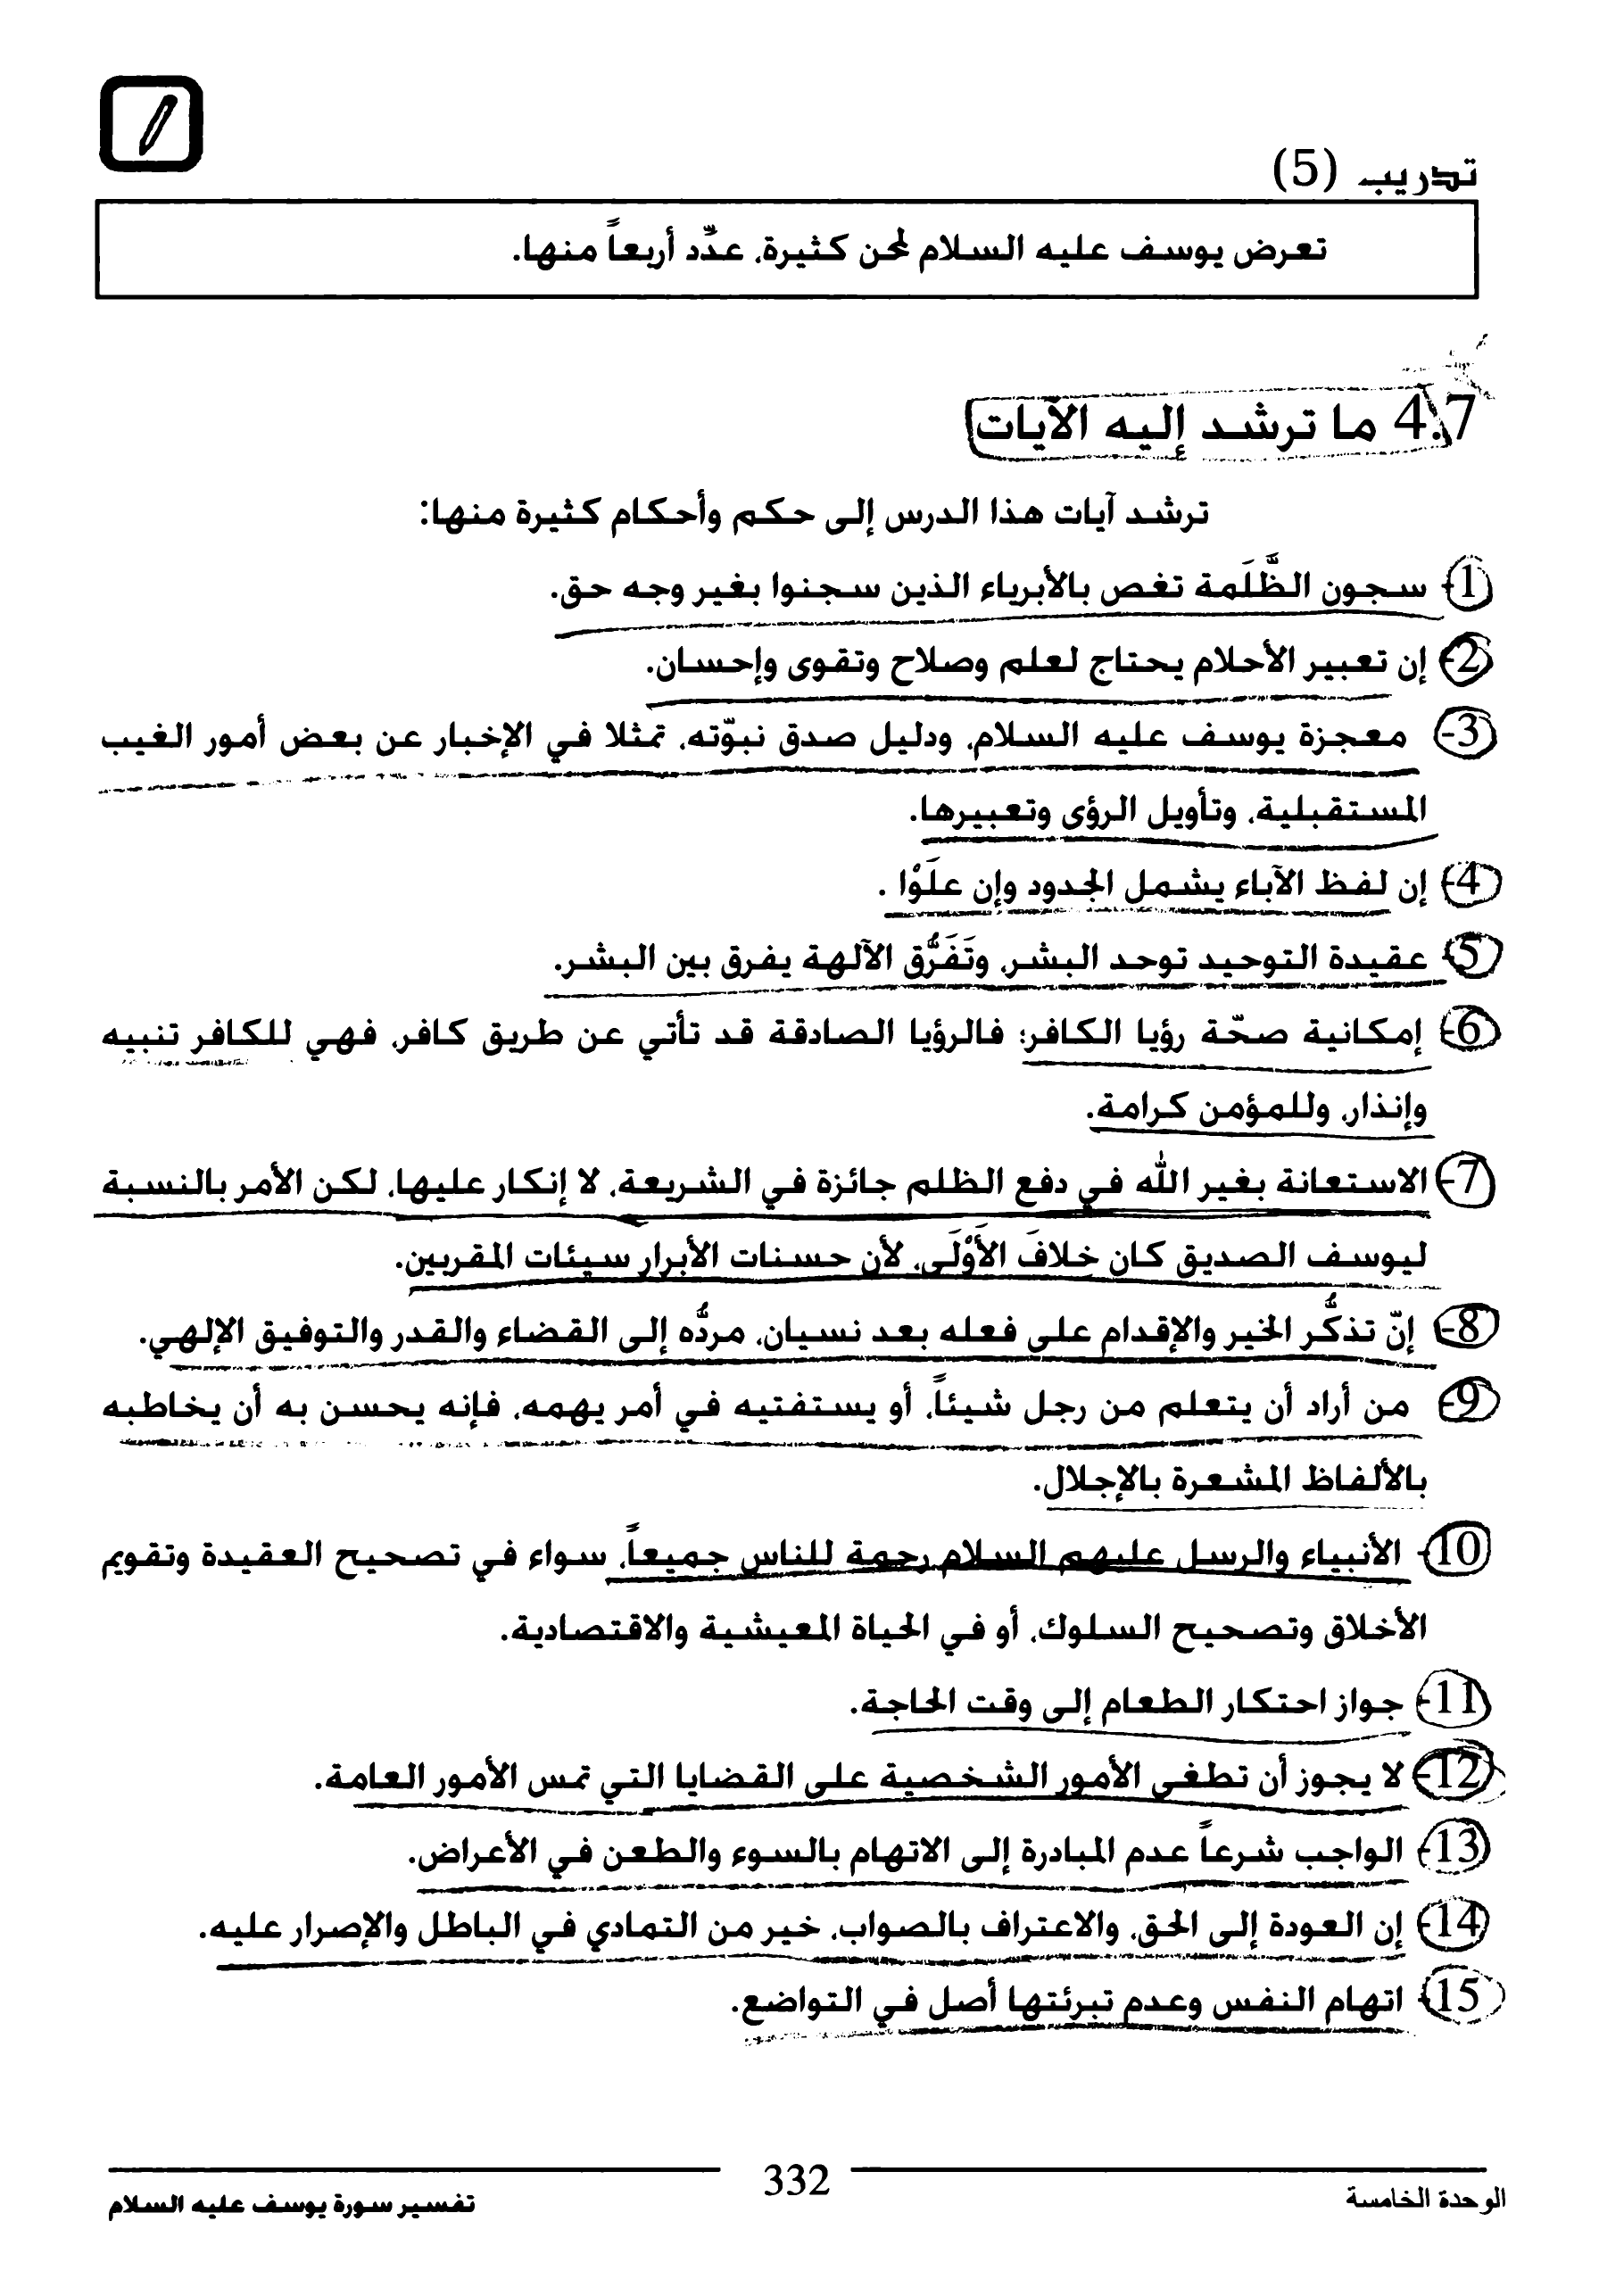 تدريب (5)
تعرض يوسف عليه السلام لمحن كثيرة، عدّد أربعاً منها.
4.7 ما ترشد إليه الآيات
ترشد آيات هذا الدرس إلى حكم وأحكام كثيرة منها:
1- سجون الظَّلَمة تغص بالأبرياء الذين سجنوا بغير وجه حق.
2- إن تعبير الأحلام يحتاج لعلم وصلاح وتقوى وإحسان.
3- معجزة يوسف عليه السلام، ودليل صدق نبوّته، تمثلا في الإخبار عن بعض أمور الغيب
المستقبلية، وتأويل الرؤى وتعبيرها.
4- إن لفظ الآباء يشمل الجدود وإن علَوْا .
5- عقيدة التوحيد توحد البشر، وتَفَرُّق الآلهة يفرق بين البشر.
6- إمكانية صحّة رؤيا الكافر؛ فالرؤيا الصادقة قد تأتي عن طريق كافر، فهي للكافر تنبيه
وإنذار، وللمؤمن كرامة.
7- الاستعانة بغير الله في دفع الظلم جائزة في الشريعة، لا إنكار عليها، لكن الأمر بالنسبة
ليوسف الصديق كان خلافَ الأَوْلَى، لأن حسنات الأبرار سيئات المقربين.
8- إنّ تذكُّر الخير والإقدام على فعله بعد نسيان، مردُّه إلى القضاء والقدر والتوفيق الإلهي.
9- من أراد أن يتعلم من رجل شيئاً، أو يستفتيه في أمر يهمه، فإنه يحسن به أن يخاطبه
بالألفاظ المشعرة بالإجلال.
10- الأنبياء والرسل عليهم السلام رحمة للناس جميعاً، سواء في تصحيح العقيدة وتقويم
الأخلاق وتصحيح السلوك، أو في الحياة المعيشية والاقتصادية.
11- جواز احتكار الطعام إلى وقت الحاجة.
12- لا يجوز أن تطغى الأمور الشخصية على القضايا التي تمس الأمور العامة.
13- الواجب شرعاً عدم المبادرة إلى الاتهام بالسوء والطعن في الأعراض.
14- إن العودة إلى الحق، والاعتراف بالصواب، خير من التمادي في الباطل والإصرار عليه.
15- اتهام النفس وعدم تبرئتها أصل في التواضع.
الوحدة الخامسة
332
تفسير سورة يوسف عليه السلام